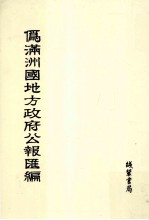 偽滿洲國地方政府公報匯編
綫裝書局